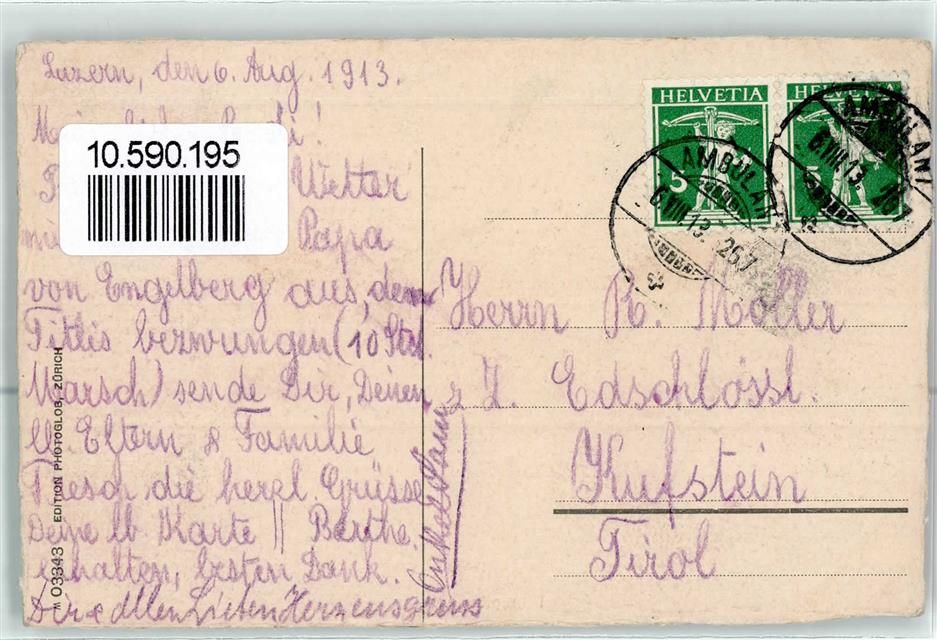 Luzern, den 6. Aug. 1913.
10.590.195
Wetter
Papa
von Engelberg aus, den
Titlis bezwungen (10 Std.
Marsch) sende Dir, Deinen
lb. Eltern & Familie
die herzl. Grüsse
Deine lb. Karte || Berthe.
erhalten, besten Dank.
Dir & allen Lieben Herzensgruss
HELVETIA
5
HELVETIA
5
AMBULANT
6.VIII.13. 267
AMBULANT
6.VIII.13. 267
Herrn R. Möller
z. Z. Edschlössl.
Kufstein
Tirol
03343 EDITION PHOTOGLOB, ZÜRICH